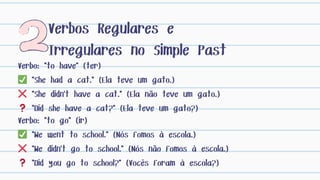 2 Verbos Regulares e
Irregulares no Simple Past
Verbo: "to have" (ter)
✅ "She had a cat." (Ela teve um gato.)
❌ "She didn't have a cat." (Ela não teve um gato.)
❓ "Did she have a cat?" (Ela teve um gato?)
Verbo: "to go" (ir)
✅ "We went to school." (Nós fomos à escola.)
❌ "We didn't go to school." (Nós não fomos à escola.)
❓ "Did you go to school?" (Vocês foram à escola?)